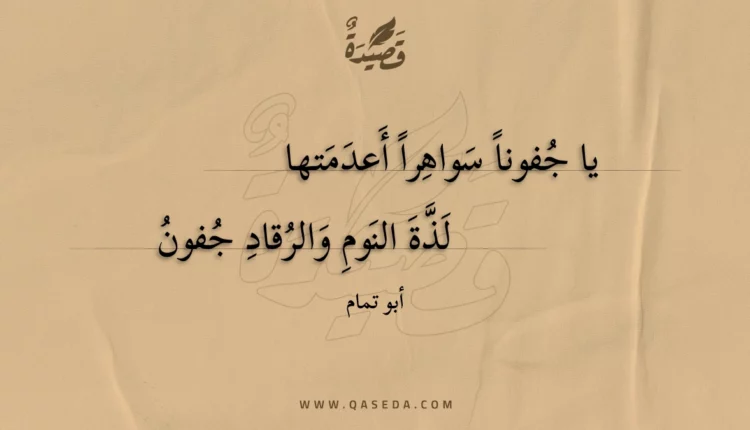 قَصِيْدَةٌ
يا جُفوناً سَواهِراً أَعدَمَتها
لَذَّةَ النَومِ وَالرُقادِ جُفونُ
أبو تمام
WWW.QASEDA.COM